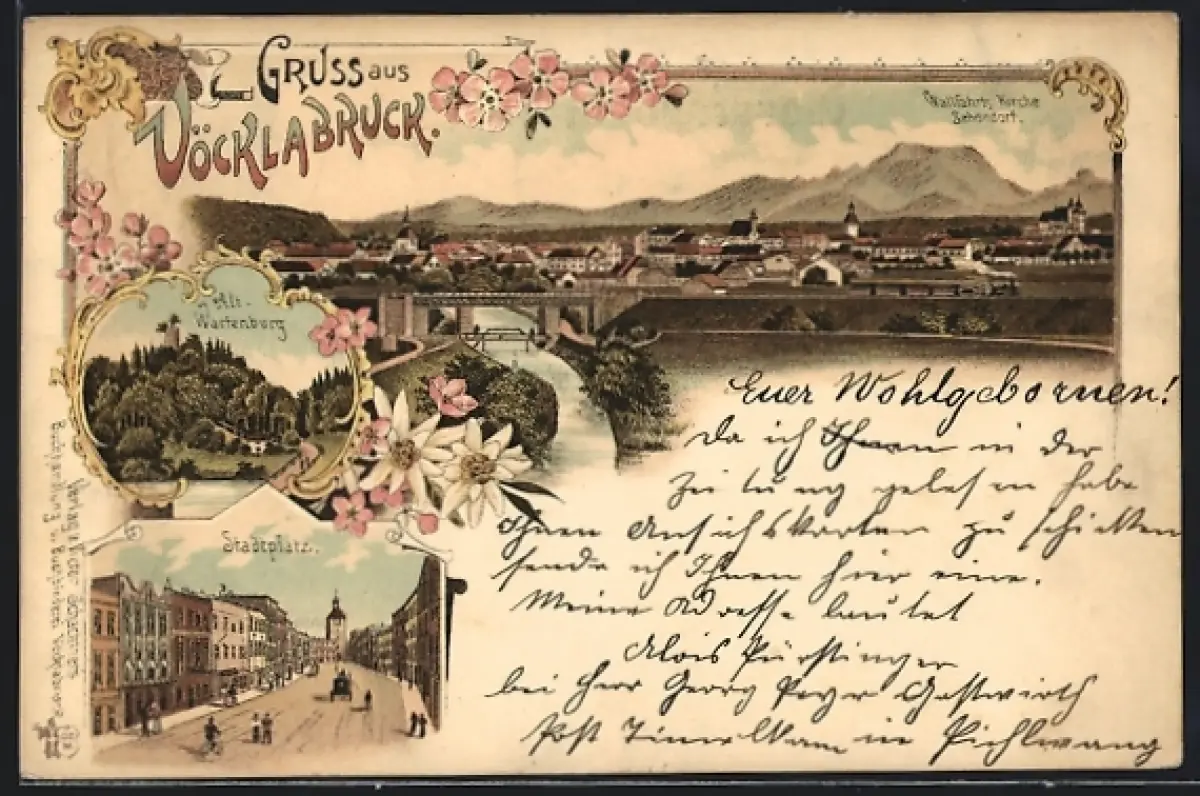 GRUSS aus
VÖCKLABRUCK.
Wallfahrts Kirche
Schöndorf.
Alt-
Wartenburg
Stadtplatz.
Euer Wohlgebornen!
Da ich Ihnen in der
Zeitung gelesen habe
Ihnen Ansichtskarten zu schicken
sende ich Ihnen hier eine.
Meine Adresse lautet
Alois Pürstinger
bei Herr Georg Payr Gastwirth
Post Timelkam in Pichlwang
Verlag
Buchhandlung u. Buchbinderei, Vöcklabruck